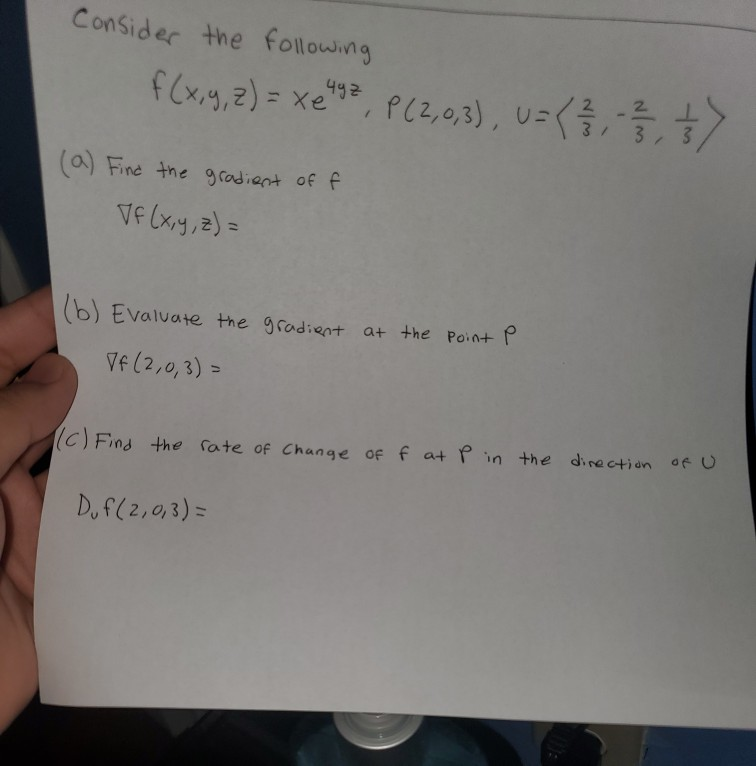 Consider the following
f(x,y,z) = xe^4yz, P(2,0,3), U=⟨2/3, -2/3, 1/3⟩
(a) Find the gradient of f
∇f(x,y,z) =
(b) Evaluate the gradient at the point P
∇f(2,0,3) =
(C) Find the rate of change of f at P in the direction of U
D_u f(2,0,3) =